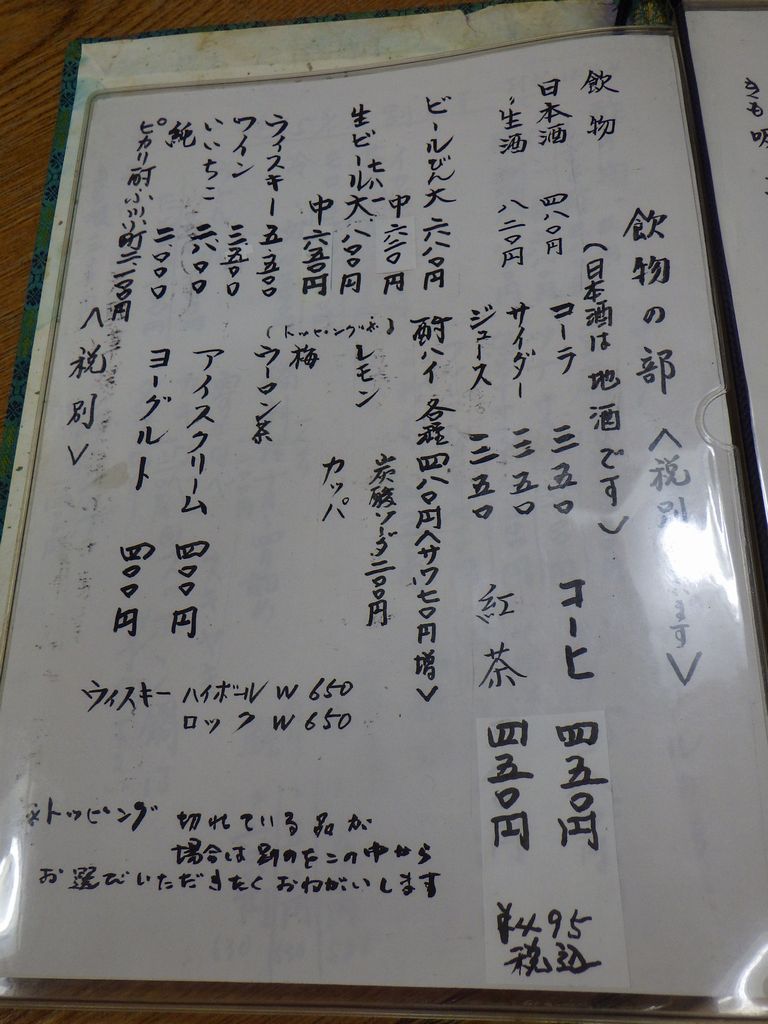 飲物の部 〈税別 ます〉
飲物
(日本酒は地酒です〉
日本酒 四八〇円
生酒 八二〇円
ビールびん大 六八〇円
中 六二〇円
生ビール 大 八〇〇円
中 六五〇円
ウィスキー 五五〇〇
ワイン 三五〇〇
いいちこ 二八〇〇
純 二〇〇〇
ピカリ酎小川小町 二、二〇〇円
〈税別〉
コーラ 三五〇
サイダー 三五〇
ジュース 三五〇
酎ハイ 各種 四八〇円〈サワ七〇円増〉
炭酸ソーダ 二〇〇円
レモン
カッパ
梅
ウーロン茶
アイスクリーム 四〇〇円
ヨーグルト 四〇〇円
コーヒ 四五〇円
紅茶 四五〇円
¥495
税込
ウィスキー ハイボール W 650
ロック W 650
※トッピング 切れている品が
場合は別のをこの中から
お選びいただきたくおねがいします
きも